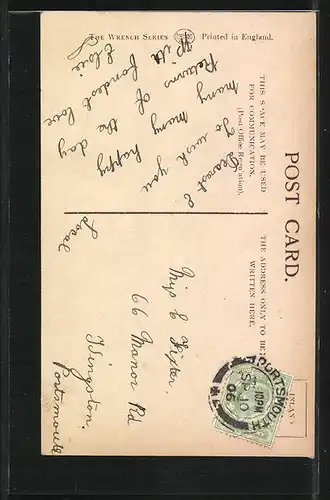 The Wrench Series
Printed in England.
POST CARD.
THIS SPACE MAY BE USED
FOR COMMUNICATION.
(Post Office Regulation).
THE ADDRESS ONLY TO BE
WRITTEN HERE.
Dearest E
To wish you
many happy
Returns of the day
With fondest love
Elsie
Local
Miss E
66 Manor Rd
Kingston.
Portsmouth
PORTSMOUTH
10 PM
10
06